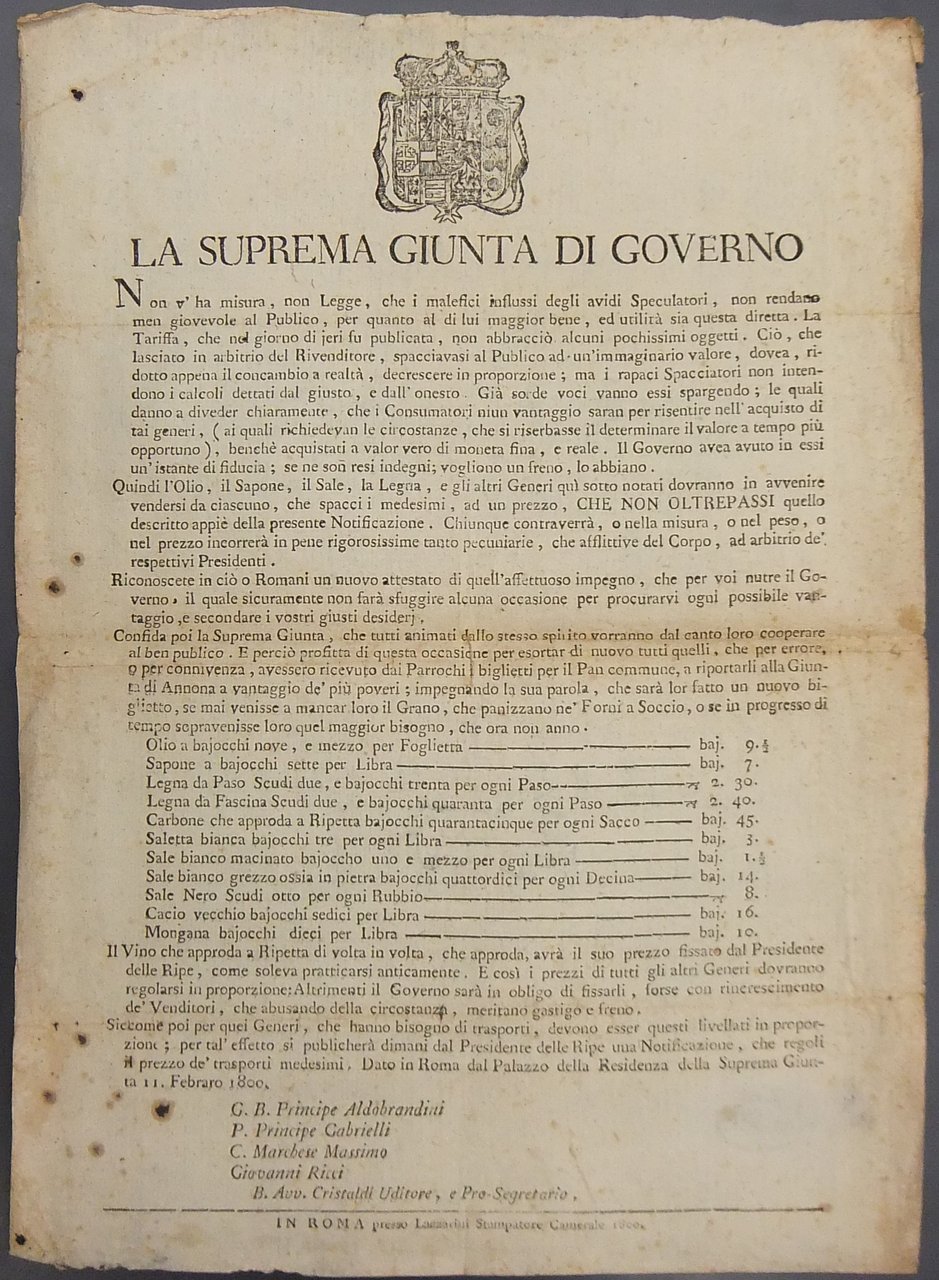 LA SUPREMA GIUNTA DI GOVERNO
Non v' ha misura, non Legge, che i malefici influssi degli avidi Speculatori, non rendano
men giovevole al Publico, per quanto al di lui maggior bene, ed utilità sia questa diretta. La
Tariffa, che nel giorno di jeri fu publicata, non abbracciò alcuni pochissimi oggetti. Ciò, che
lasciato in arbitrio del Rivenditore, spacciavasi al Publico ad un'immaginario valore, dovea, ri-
dotto appena il concambio a realtà, decrescere in proporzione; ma i rapaci Spacciatori non inten-
dono i calcoli dettati dal giusto, e dall'onesto. Già sorde voci vanno essi spargendo; le quali
danno a diveder chiaramente, che i Consumatori niun vantaggio saran per risentire nell'acquisto di
tai generi, (ai quali richiedevan le circostanze, che si riserbasse il determinare il valore a tempo più
opportuno), benchè acquistati a valor vero di moneta fina, e reale. Il Governo avea avuto in essi
un'istante di fiducia; se ne son resi indegni; vogliono un freno, lo abbiano.
Quindi l'Olio, il Sapone, il Sale, la Legna, e gli altri Generi quì sotto notati dovranno in avvenire
vendersi da ciascuno, che spacci i medesimi, ad un prezzo, CHE NON OLTREPASSI quello
descritto appiè della presente Notificazione. Chiunque contraverrà, o nella misura, o nel peso, o
nel prezzo incorrerà in pene rigorosissime tanto pecuniarie, che afflittive del Corpo, ad arbitrio de'
respettivi Presidenti.
Riconoscete in ciò o Romani un nuovo attestato di quell'affettuoso impegno, che per voi nutre il Go-
verno, il quale sicuramente non farà sfuggire alcuna occasione per procurarvi ogni possibile van-
taggio, e secondare i vostri giusti desiderj.
Confida poi la Suprema Giunta, che tutti animati dallo stesso spirito vorranno dal canto loro cooperare
al ben publico. E perciò profitta di questa occasione per esortar di nuovo tutti quelli, che per errore,
o per connivenza, avessero ricevuto dai Parrochi i biglietti per il Pan commune, a riportarli alla Giun-
ta di Annona a vantaggio de' più poveri; impegnando la sua parola, che sarà lor fatto un nuovo bi-
glietto, se mai venisse a mancar loro il Grano, che panizzano ne' Forni a Soccio, o se in progresso di
tempo sopravenisse loro quel maggior bisogno, che ora non anno.
Olio a bajocchi nove, e mezzo per Foglietta baj. 9.½
Sapone a bajocchi sette per Libra baj. 7.
Legna da Paso Scudi due, e bajocchi trenta per ogni Paso 2. 30.
Legna da Fascina Scudi due, e bajocchi quaranta per ogni Paso 2. 40.
Carbone che approda a Ripetta bajocchi quarantacinque per ogni Sacco baj. 45.
Saletta bianca bajocchi tre per ogni Libra baj. 3.
Sale bianco macinato bajoccho uno e mezzo per ogni Libra baj. 1.½
Sale bianco grezzo ossia in pietra bajocchi quattordici per ogni Decina baj. 14.
Sale Nero Scudi otto per ogni Rubbio 8.
Cacio vecchio bajocchi sedici per Libra baj. 16.
Mongana bajocchi dieci per Libra baj. 10.
Il Vino che approda a Ripetta di volta in volta, che approda, avrà il suo prezzo fissato dal Presidente
delle Ripe, come soleva pratticarsi anticamente. E così i prezzi di tutti gli altri Generi dovranno
regolarsi in proporzione: Altrimenti il Governo sarà in obligo di fissarli, forse con rincrescimento
de' Venditori, che abusando della circostanza, meritano gastigo e freno.
Siccome poi per quei Generi, che hanno bisogno di trasporti, devono esser questi livellati in propor-
zione; per tal' effetto si publicherà dimani dal Presidente delle Ripe una Notificazione, che regoli
il prezzo de' trasporti medesimi. Dato in Roma dal Palazzo della Residenza della Suprema Giun-
ta 11. Febraro 1800.
G. B. Principe Aldobrandini
P. Principe Gabrielli
C. Marchese Massimo
Giovanni Ricci
B. Avv. Cristaldi Uditore, e Pro-Segretario.
IN ROMA presso Lazzarini Stampatore Camerale 1800.